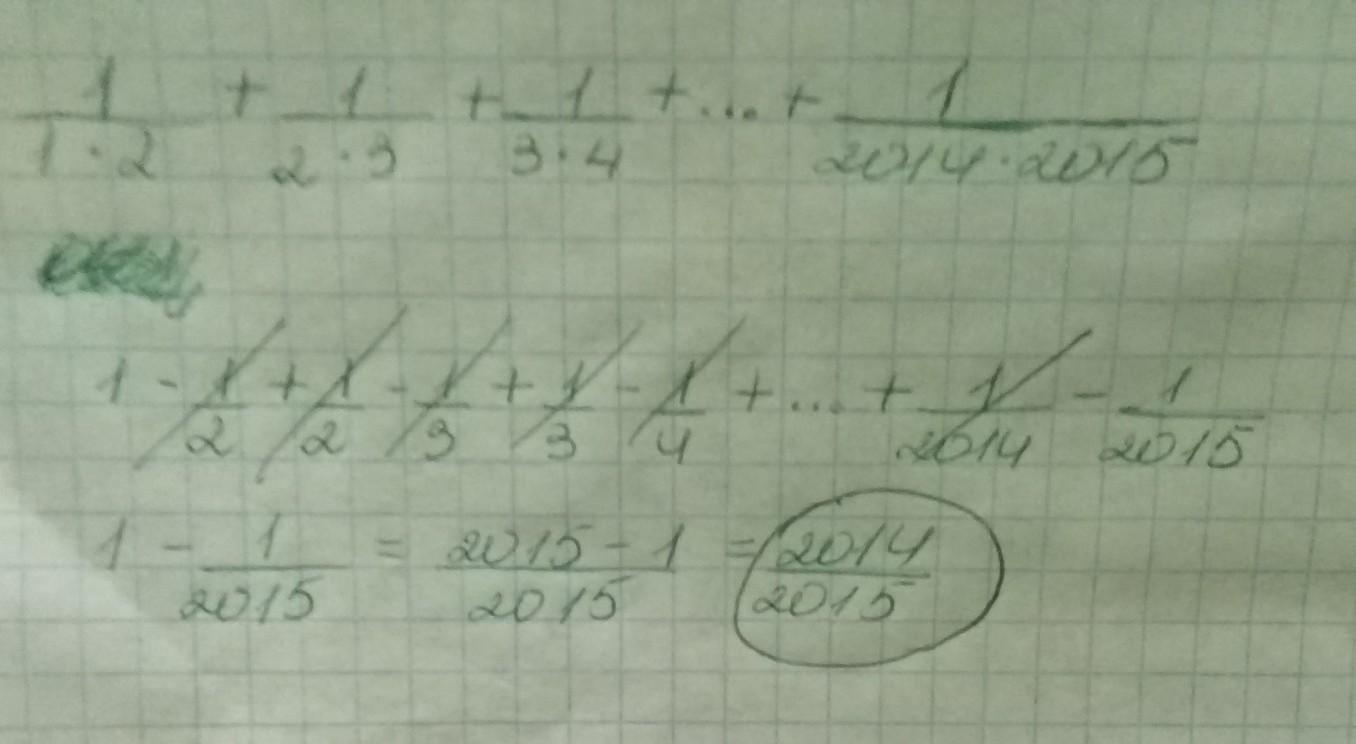 1/(1·2) + 1/(2·3) + 1/(3·4) + ... + 1/(2014·2015)
1 - 1/2 + 1/2 - 1/3 + 1/3 - 1/4 + ... + 1/2014 - 1/2015
1 - 1/2015 = (2015 - 1)/2015 = 2014/2015